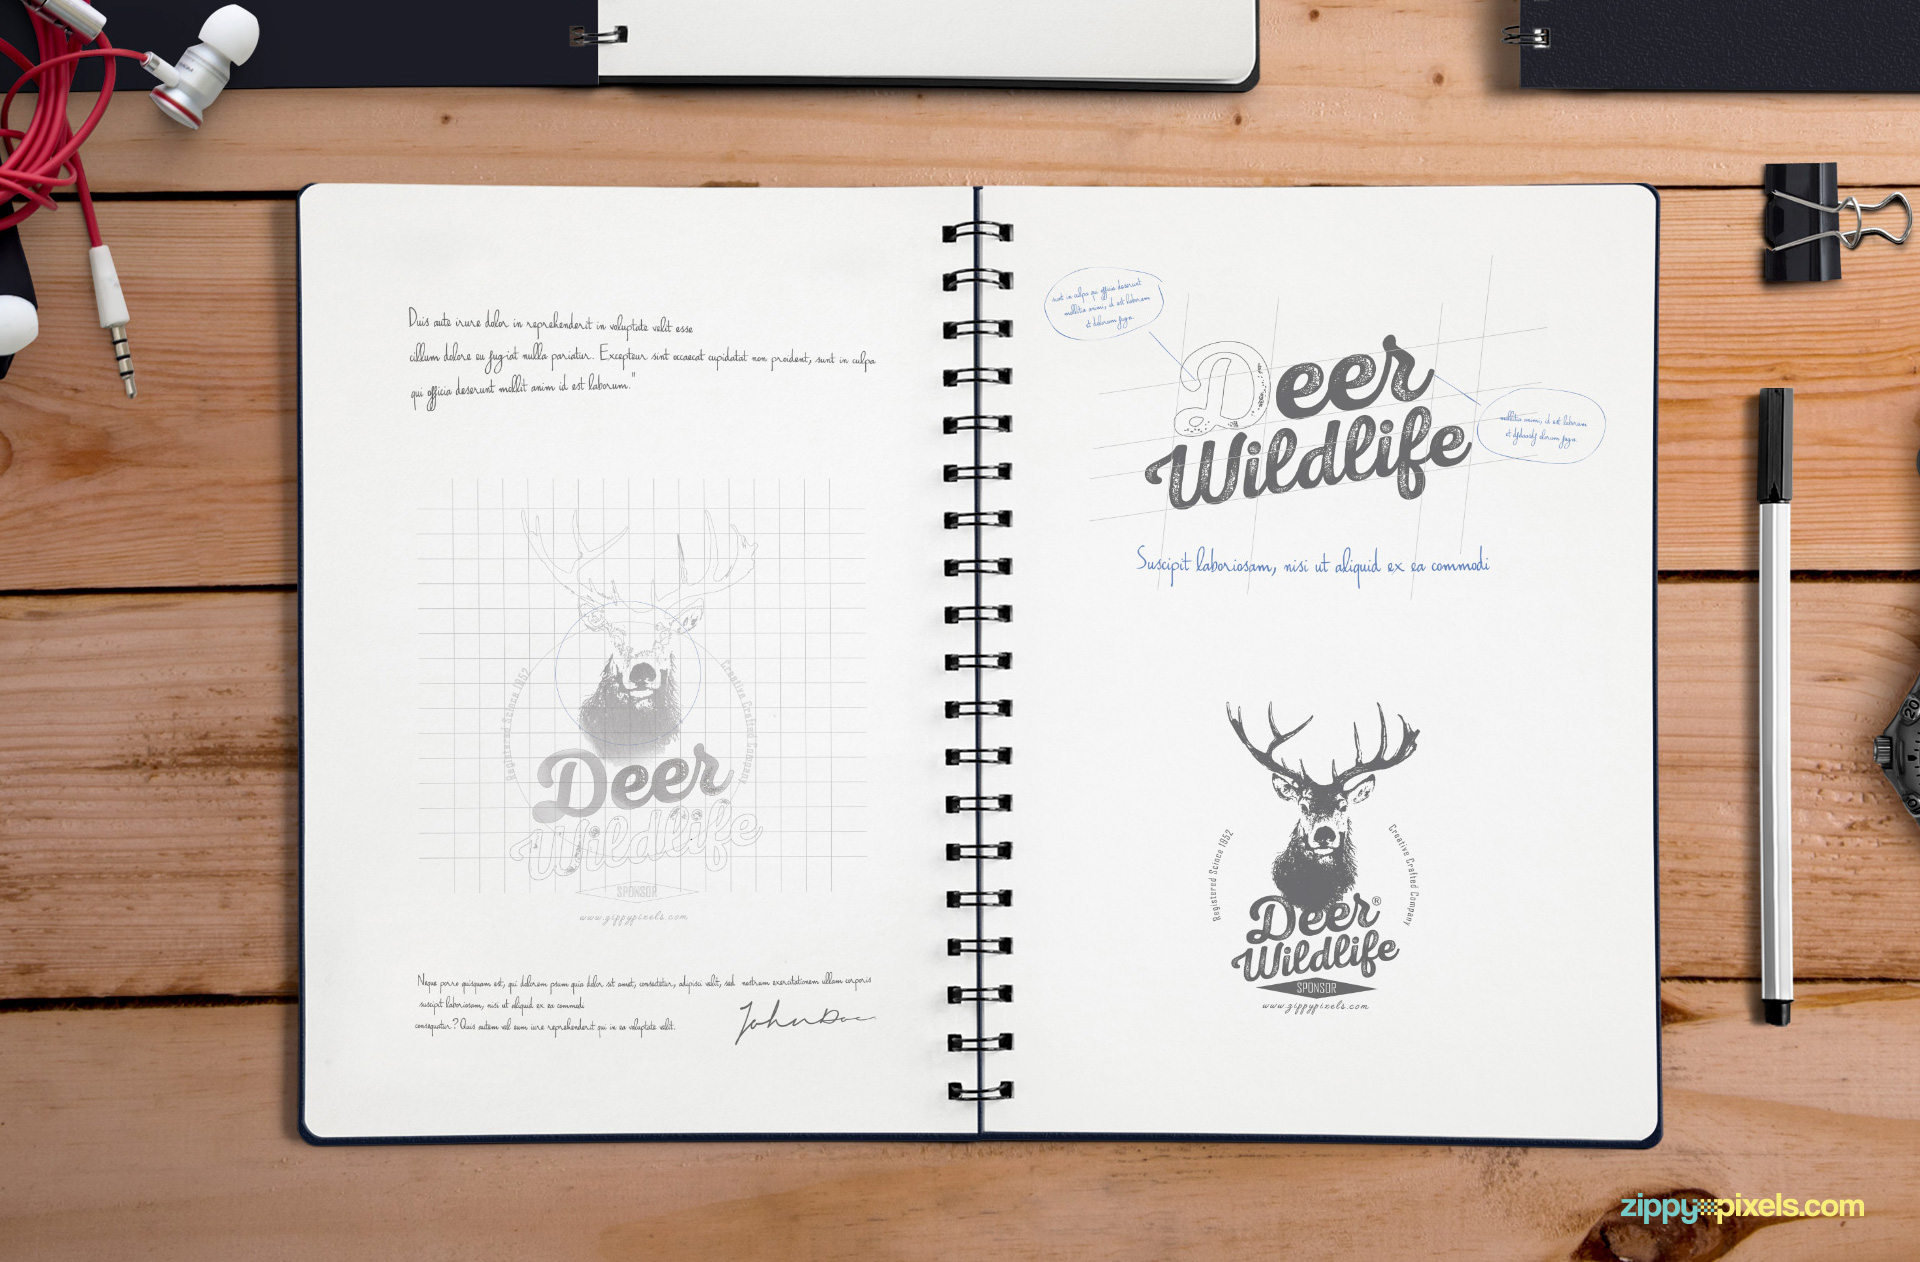 Duis aute irure dolor in reprehenderit in voluptate velit esse
cillum dolore eu fugiat nulla pariatur. Excepteur sint occaecat cupidatat non proident, sunt in culpa
qui officia deserunt mollit anim id est laborum."
Registered Scince 1952
Creative Crafted Company
Deer
Wildlife
SPONSOR
www.zippypixels.com
Neque porro quisquam est, qui dolorem ipsum quia dolor sit amet, consectetur, adipisci velit, sed nostrum exercitationem ullam corporis
suscipit laboriosam, nisi ut aliquid ex ea commodi
consequatur? Quis autem vel eum iure reprehenderit qui in ea voluptate velit.
John Doe
sunt in culpa qui officia deserunt
mollitia animi, id est laborum
et dolorum fuga.
Deer
Wildlife
mollitia animi, id est laborum
et dolorum fuga.
Suscipit laboriosam, nisi ut aliquid ex ea commodi
Registered Scince 1952
Creative Crafted Company
Deer®
Wildlife
SPONSOR
www.zippypixels.com
20
zippypixels.com